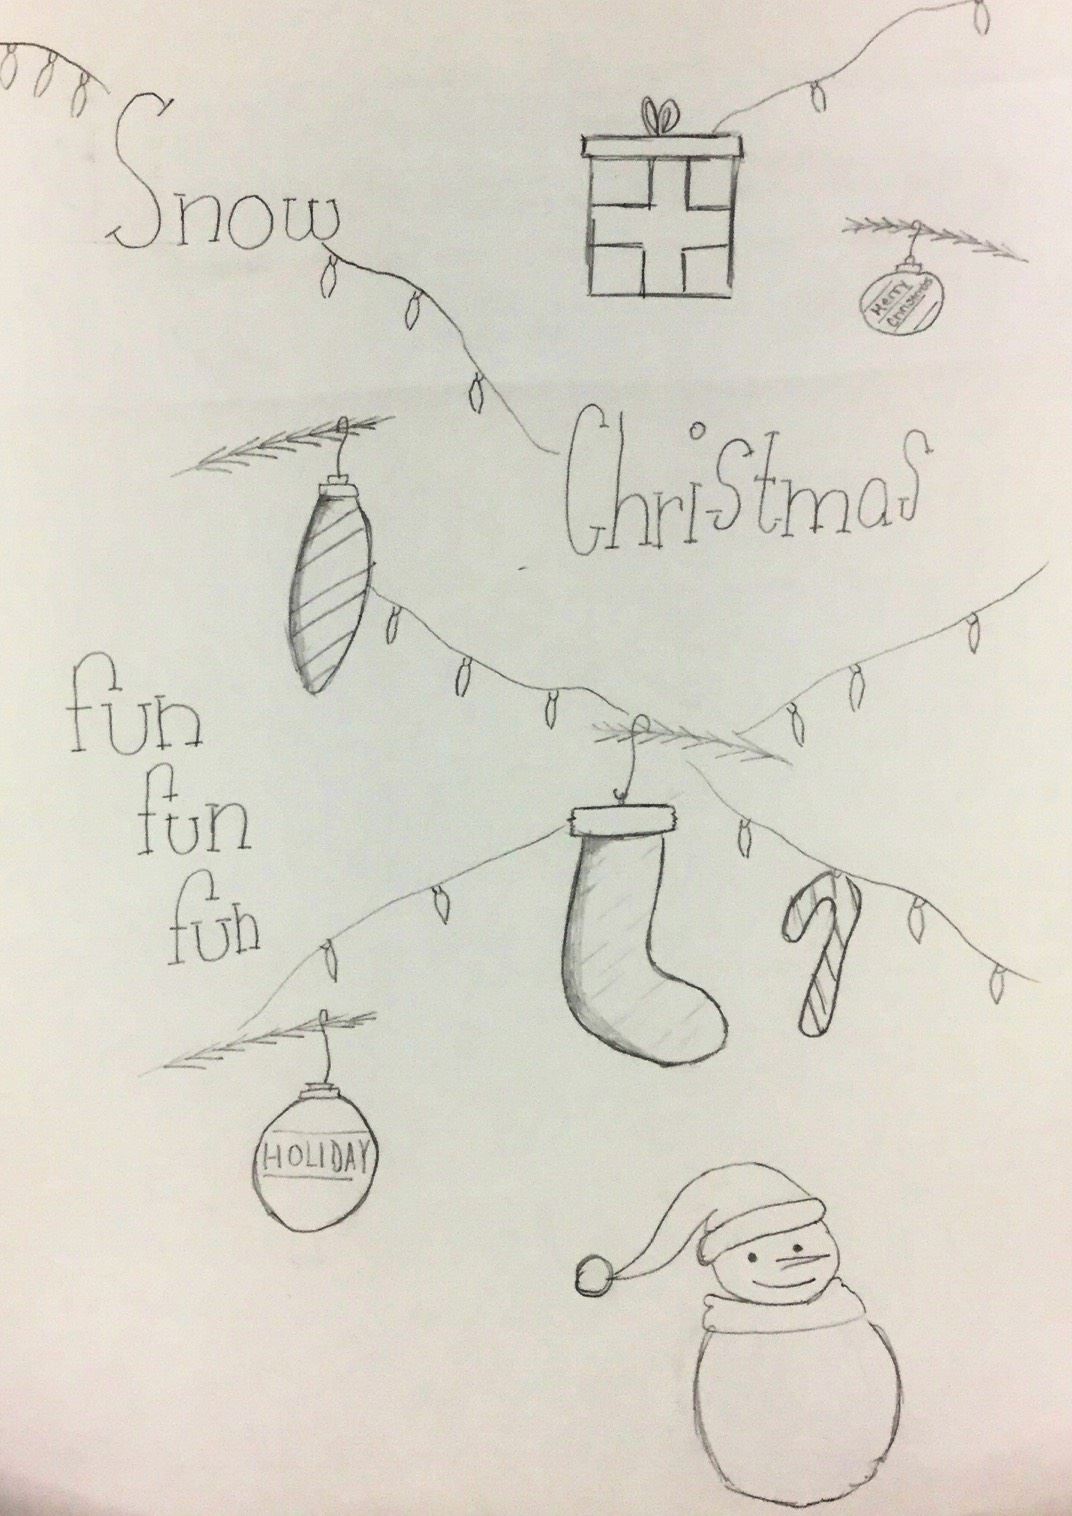 Snow
Merry
Christmas
Christmas
fun
fun
fun
HOLIDAY